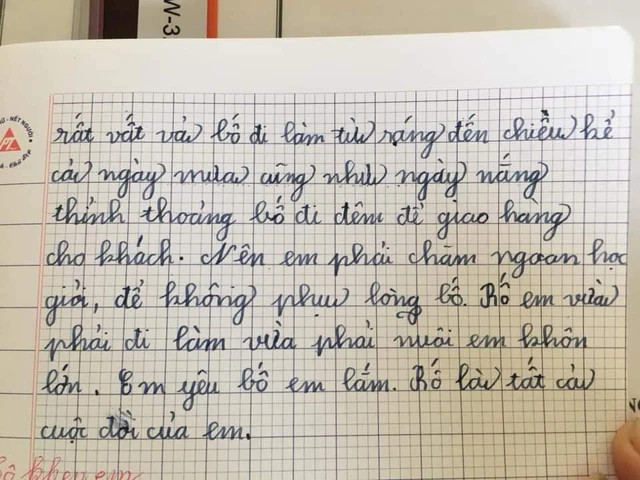 W-3
NẾT NGƯỜI
rất vất vả bố đi làm từ sáng đến chiều kể
cả ngày mưa cũng như ngày nắng
thỉnh thoảng bố đi đêm để giao hàng
cho khách. Nên em phải chăm ngoan học
giỏi, để không phụ lòng bố. Bố em vừa
phải đi làm vừa phải nuôi em khôn
lớn. Em yêu bố em lắm. Bố là tất cả
cuộc đời của em.
khen em